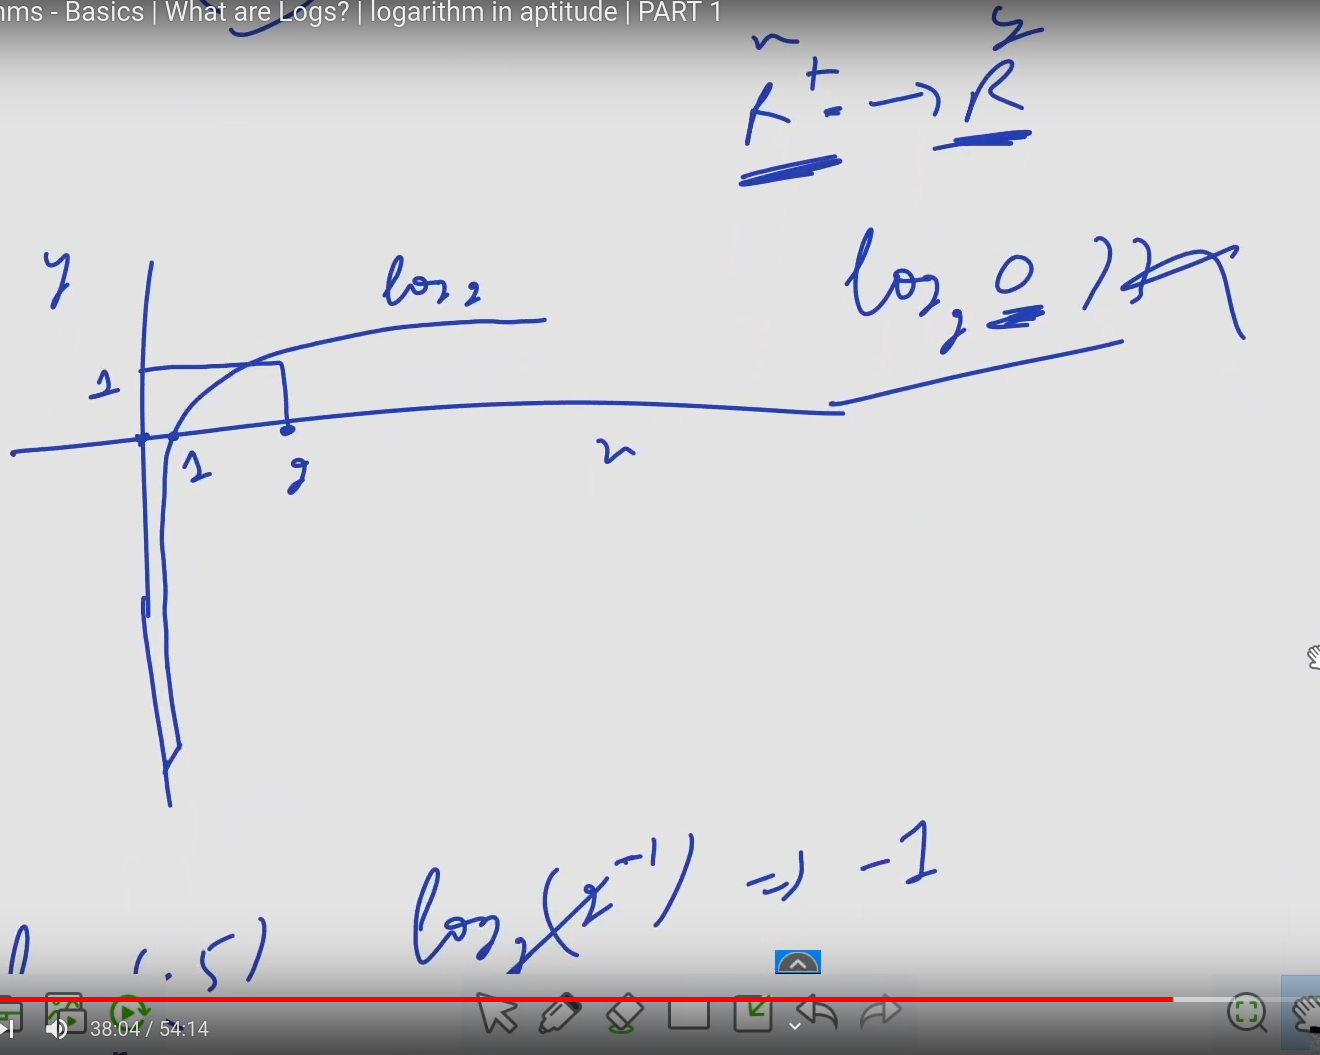 ms - Basics | What are Logs? | logarithm in aptitude | PART 1
x y
R⁺ → R
y
log₂
log₂ 0
1
1 2
x
log₂(2⁻¹) ⇒ -1
(.5)
38:04 / 54:14